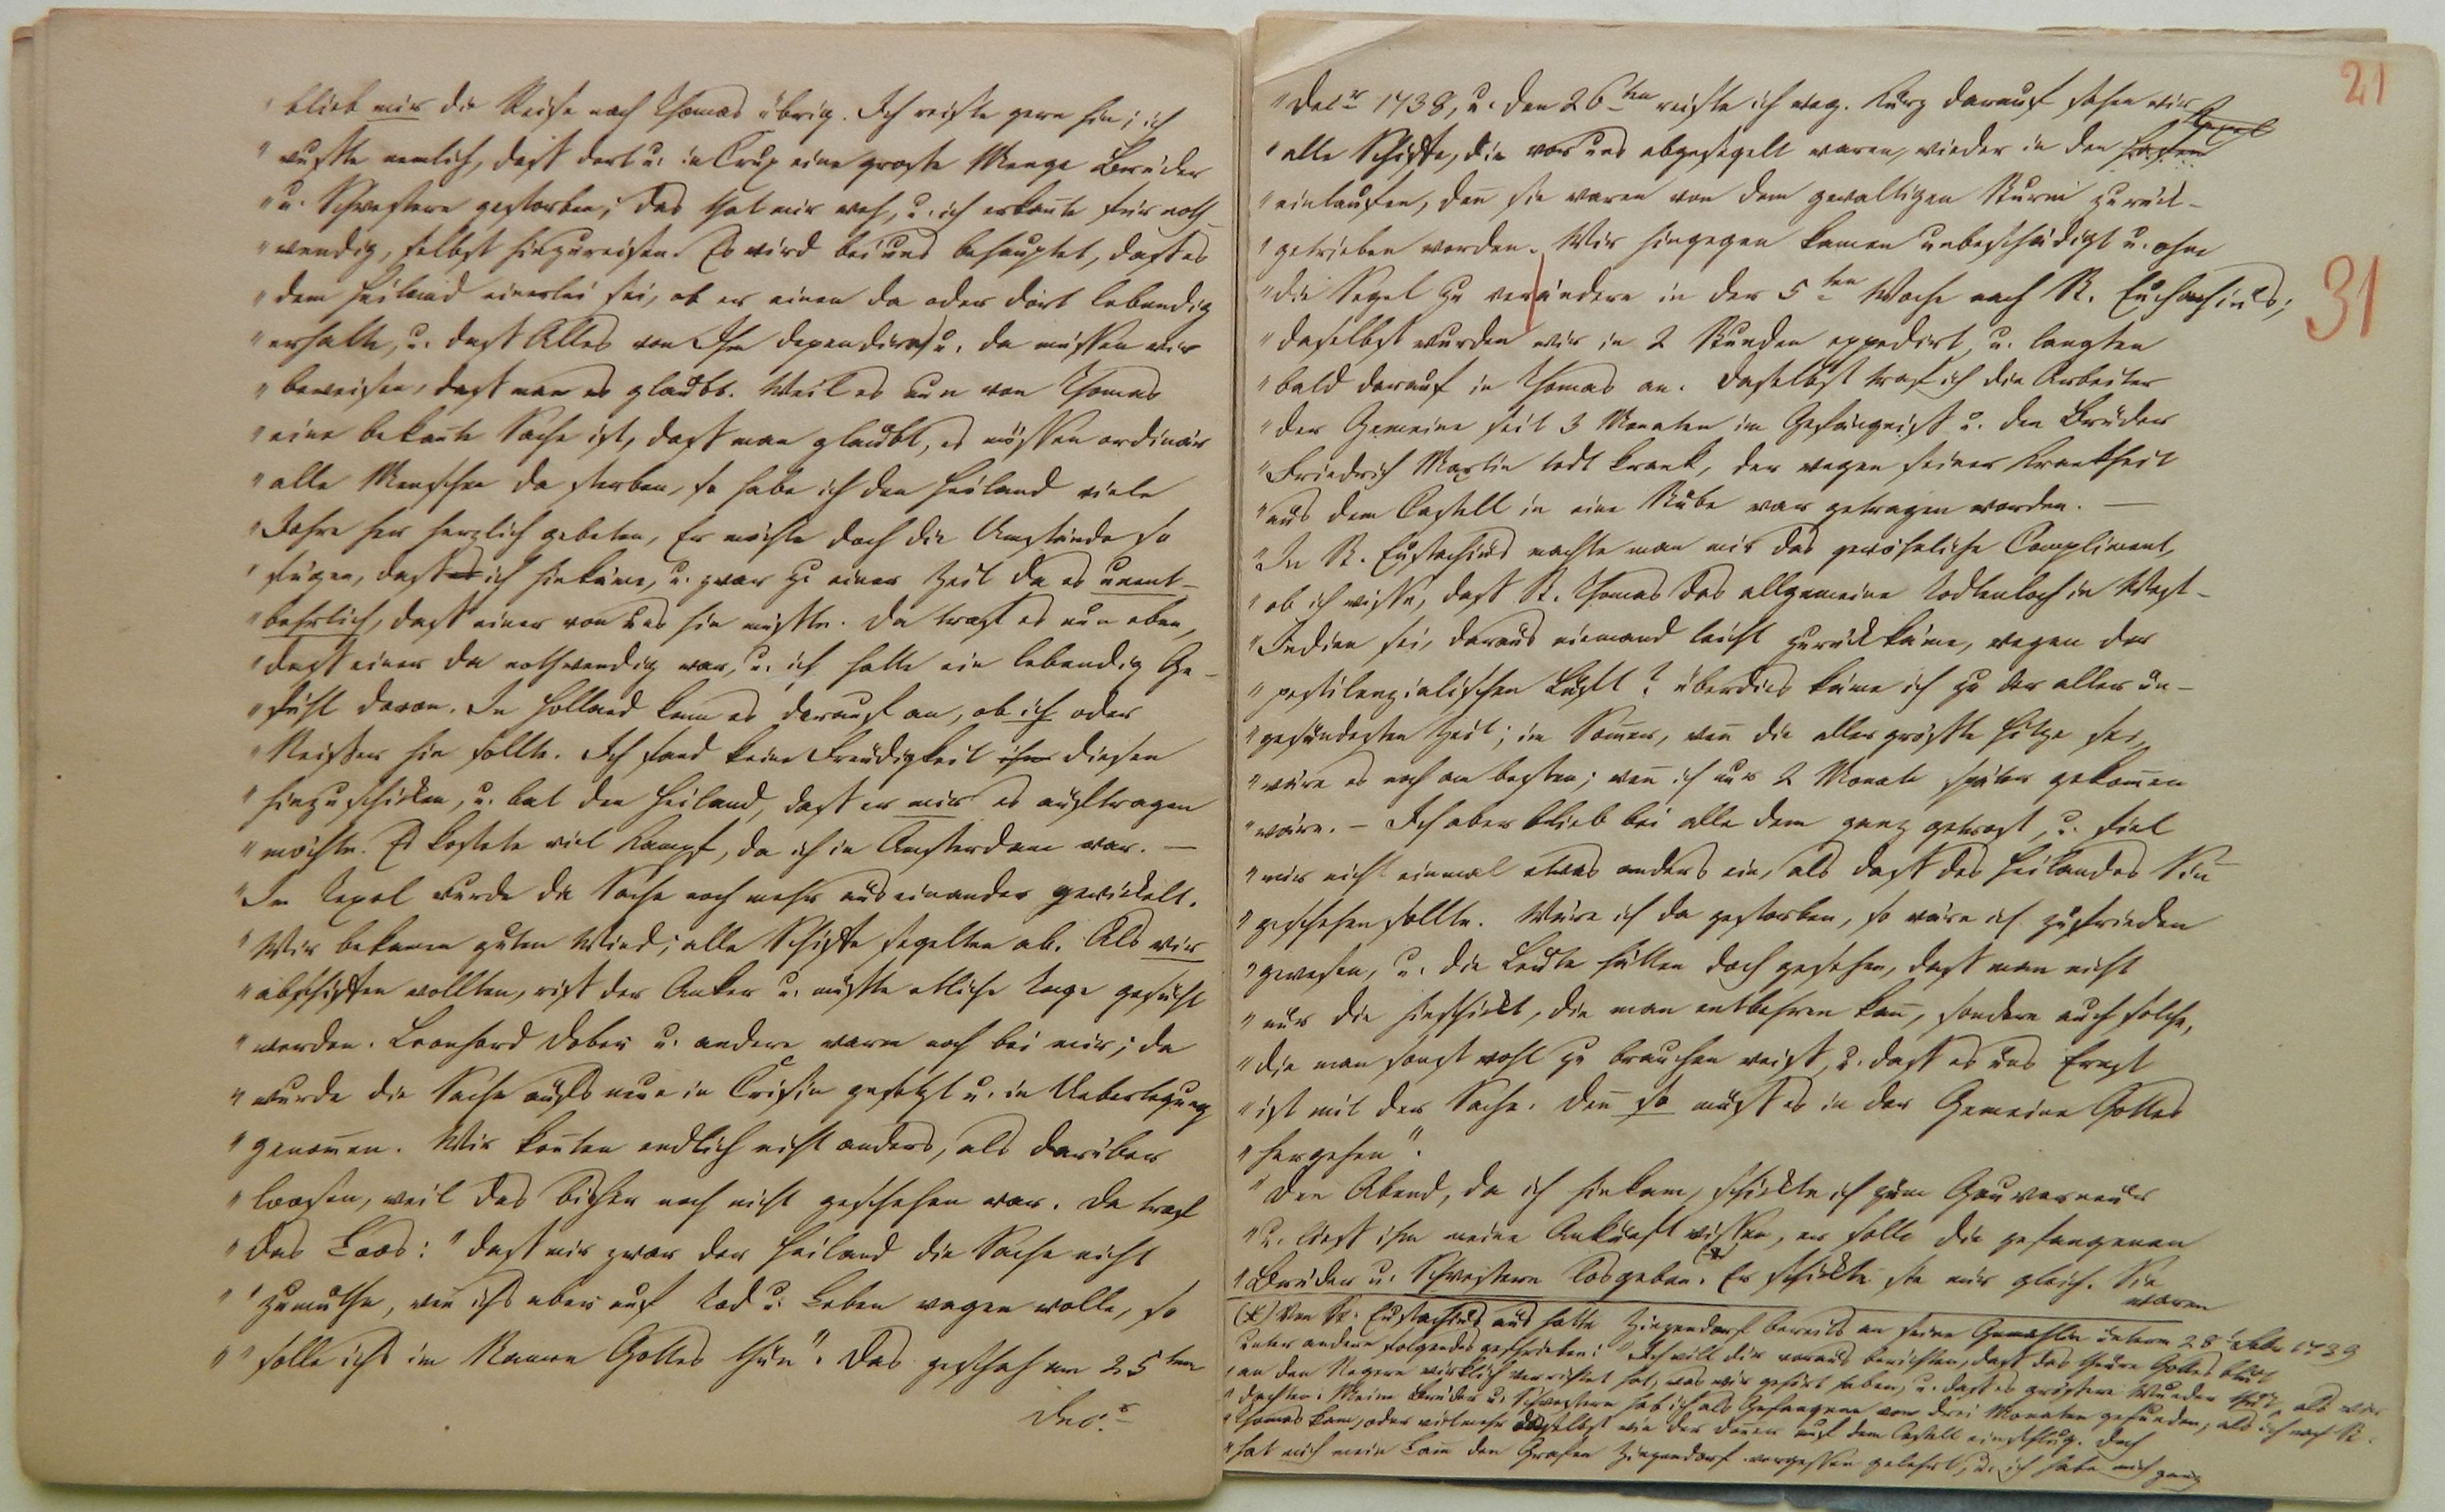 " blieb mir die Reise nach Thomas übrig. Ich reiste gern hin; ich
" wußte nemlich, daß dort u. in Crux eine große Menge Brüder
" u. Schwestern gestorben; das that mir weh, u. ich erkan̄te für noth-
" wendig, selbst hinzureisen. Es wird bei uns behauptet, daß es
" dem Heiland einerlei sei, ob er einen da oder dort lebendig
" erhalte, u. daß Alles von Ihm dependire; u. da müssen wir
" beweisen, daß man es glaubt. Weil es nun von Thomas
" eine bekan̄te Sache ist, daß man glaubt, es müssen ordinair
" alle Menschen da sterben, so habe ich den Heiland viele
" Jahre her herzlich gebeten, Er möchte doch die Umstände so
" fügen, daß es ich hinkäme, u. zwar zu einer Zeit da es unent-
" behrlich, daß einer von uns hin müßte. Da traf es nun eben,
" daß einer da nothwendig war, u. ich hatte ein lebendig Ge-
" fühl davon. In Holland kam es darauf an, ob ich oder
" Reißer hin sollte. Ich fand keine Freudigkeit ihn diesen
" hinzuschicken, u. bat den Heiland, daß er mir es auftragen
" möchte. Es kostete viel Kampf, da ich in Amsterdam war. —
" Im Texel wurde die Sache noch mehr auseinander gewickelt.
" Wir bekamen guten Wind; alle Schiffe segelten ab. Als wir
" abschiffen wollten, riß der Anker u. mußte etliche Tage gesucht
" werden. Leonhard Dober u. andere waren noch bei mir; da
" wurde die Sache aufs neue in Crisin gesetzt u. in Ueberlegung
" genom̄en. Wir kon̄ten endlich nicht anders, als darüber
" loosen, weil das bisher noch nicht geschehen war. Da traf
" das Loos: "daß mir zwar der Heiland die Sache nicht
" "zumuthe, wen̄ ichs aber auf Tod u. Leben wagen wolle, so
" "solle ichs im Namen Gottes thun". Das geschah am 25ten
Decr.
21
" Decr 1738, u. den 26ten reiste ich weg. Kurz darauf sahen wir
Texel
" alle Schiffe, die vor uns abgesegelt waren, wieder in den Hafen
" einlaufen, den̄ sie waren von dem gewaltigen Sturm zurück-
" getrieben worden. Wir hingegen kamen unbeschädigt u. ohne
" die Segel zu verändern in der 5ten Woche nach St. Euchachius;
31
" daselbst wurden wir in 2 Stunden expedirt, u. langten
" bald darauf in Thomas an. Daselbst traf ich die Arbeiter
" der Gemeine seit 3 Monaten im Gefängniß u. den Bruder
" Friedrich Martin todt krank, der wegen seiner Krankheit
" aus dem Castell in eine Stube war getragen worden. —
" In St. Eustachius machte man mir das gewöhnliche Compliment,
" ob ich wisse, daß St. Thomas das allgemeine Todtenloch in West-
" Indien sei, daraus niemand leicht zurückkäme, wegen der
" pestilenzialischen Luft? überdies käme ich zu der aller un-
" gesundesten Zeit; im Som̄er, wen̄ die aller größte Hitze sei,
" wäre es noch am besten; wen̄ ich nur 2 Monate später gekom̄en
" wäre. — Ich aber blieb bei alle dem ganz getrost, u. fiel
" mir nicht einmal etwas anders ein, als daß des Heilandes Sin̄
" geschehen sollte. Wäre ich da gestorben, so wäre ich zufrieden
" gewesen, u. die Leute hätten doch gesehen, daß man nicht
" nur die hinschickt, die man entbehren kan̄, sondern auch solche,
" die man sonst wohl zu brauchen weiß, u. daß es uns Ernst
" ist mit der Sache. Den̄ so muß es in der Gemeine Gottes
" hergehen".
" Den Abend, da ich hinkam, schickte ich zum Gouverneur
" u. ließ ihm meine Ankunft wissen, er solle die gefangenen
" Brüder u. Schwestern losgeben. (*) Er schickte sie mir gleich. Sie
waren
(*) Von St. Eustachius aus hatte Zinzendorf bereits an seine Gemahlin unterm 28 Febr 1739
unter andern folgendes geschrieben: "Ich will dir voraus berichten, daß das theure Gottes Blut
" an den Negern wirklich verrichtet hat, was wir gehört haben, u. daß es größere Wunder thut, als wir
" dachten. Meine Brüder u. Schwestern hab ich als Gefangene von drei Monaten gefunden, als ich nach St.
" Thomas kam, oder vielmehr daselbst wie der Don̄er auf dem Castell einschlug. Doch
" hat mich mein Lam̄ den Grafen Zinzendorf vergessen gelehrt, u. ich habe mich ganz